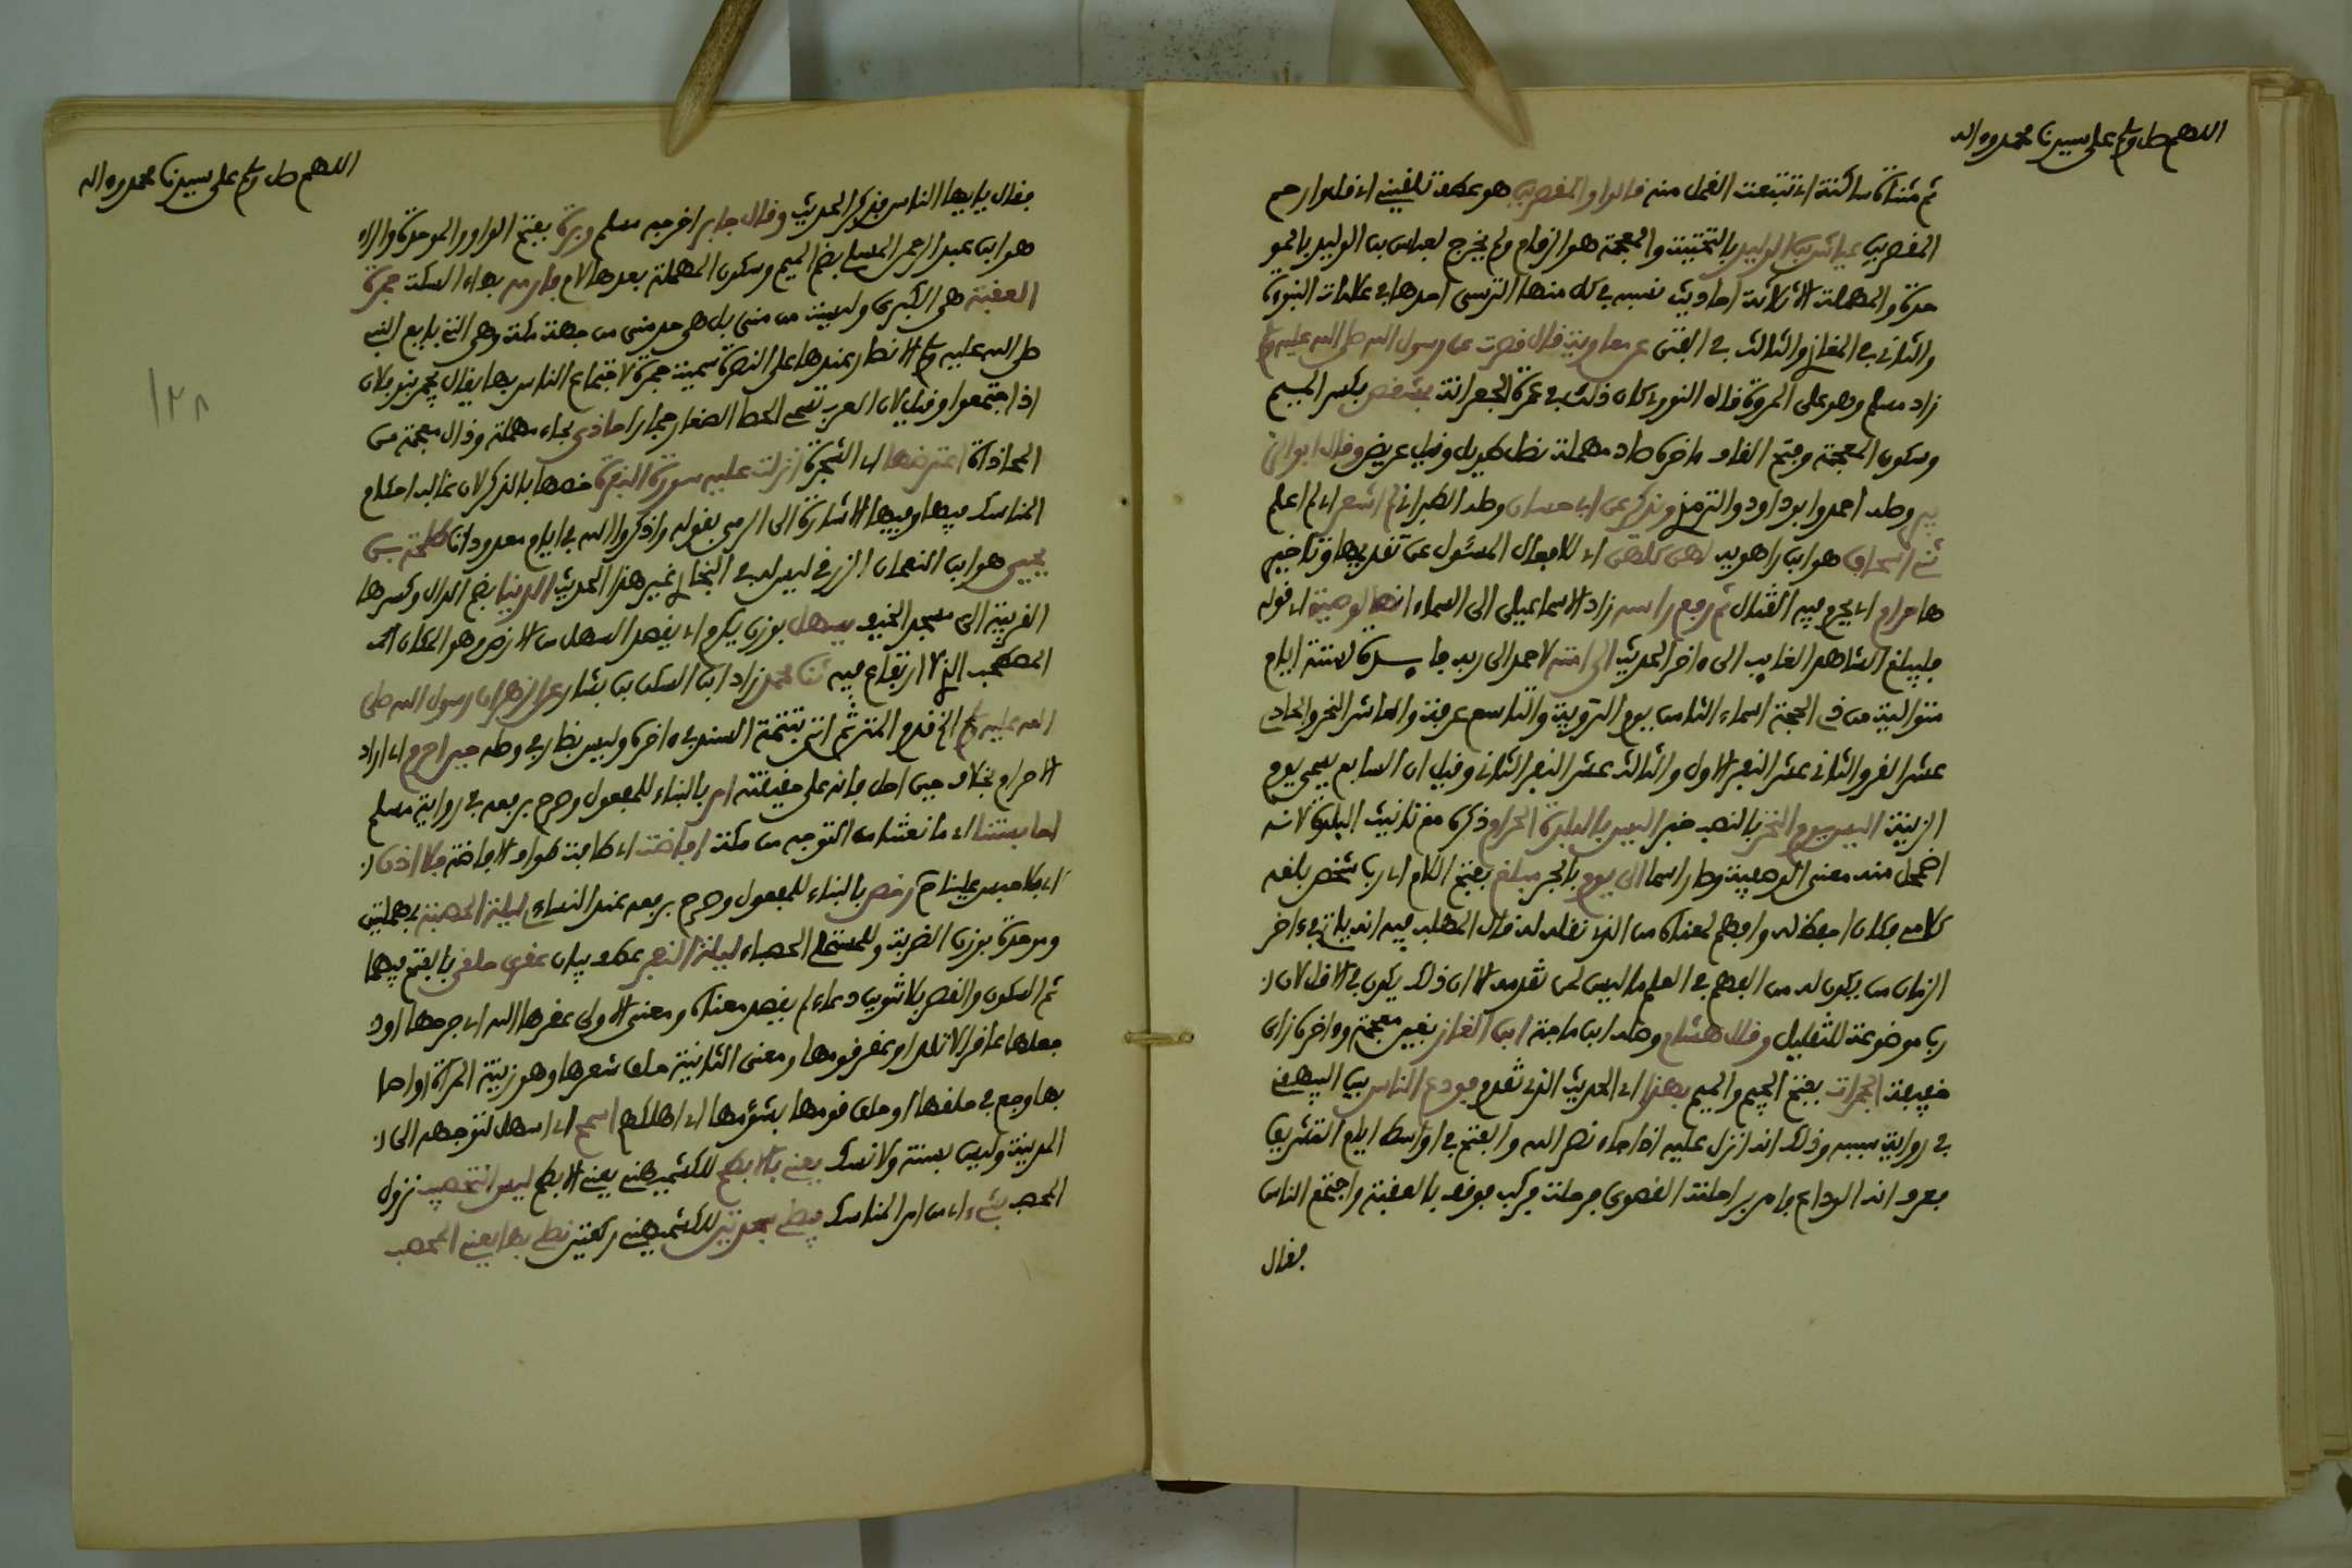 اللهم صل وسلم على سيدنا محمد وءاله
ثم مثناة ساكنة أي تتبعت القمل منه قالوا والمقصرين هو عطف تلقيني أي قل وارحم
المقصرين عياش بن الوليد بالتحتية والمعجمة هو الرقام ولم يخرج لعباس بن الوليد بالمو
حدة والمهملة إلا ثلاثة أحاديث نسبه في كل منها النرسي أحدها في علامات النبوءة
والثاني في المغازي والثالث في الفتن عن معاوية قال قصرت عن رسول الله صلى الله عليه وسلم
زاد مسلم وهو على المروة قال النووي كان ذلك في عمرة الجعرانة بمشقص بكسر الميم
وسكون المعجمة وفتح القاف ءاخره صاد مهملة نصل طويل وقيل عريض وقال أبو الز
بير وصله أحمد وأبو داود والترمذي ويذكر عن أبي حسان وصله الطبراني لم أشعر أي لم أعلم
ثني إسحاق هو ابن راهويه لهن كلهن أي للأفعال المسئول عن تقديمها وتأخير
ها حرام أي يحرم فيه القتال ثم رفع رأسه زاد الإسماعيلي إلى السماء إنها لوصيته أي قوله
فليبلغ الشاهد الغايب إلى ءاخر الحديث إلى أمته لأحمد إلى ربه فايدة لستة أيام
متوالية من ذي الحجة أسماء الثامن يوم التروية والتاسع عرفة والعاشر النحر والحادي
عشر القر والثاني عشر النفر الأول والثالث عشر النفر الثاني وقيل إن السابع يسمى يوم
الزينة أليس يوم النحر بالنصب خبر ليس بالبلدة الحرام ذكره مع تأنيث البلدة لأنه
اضمحل منه معنى الوصفية وصار اسما إلى يوم بالجر مبلغ بفتح اللام أي رب شخص بلغه
كلامي فكان أحفظ له وأفهم لمعناه من الذي نقله له قال المهلب فيه أنه يأتي في ءاخر
الزمان من يكون له من الفهم في العلم ما ليس لمن تقدمه إلا أن ذلك يكون في الأقل لأن
رب موضوعة للتقليل وقال هشام وصله ابن ماجة ابن الغاز بغين معجمة وءاخره زاي
خفيفة الجمرات بفتح الجيم والميم بهذا أي الحديث الذي تقدم فودع الناس بين البيهقي
في رواية سببه وذلك أنه أنزل عليه إذا جاء نصر الله والفتح في أواسط أيام التشريق
فعرف أنه الوداع فأمر براحلته القصوى فرحلت فركب فوقف بالعقبة واجتمع الناس
فقال
اللهم صل وسلم على سيدنا محمد وءاله
١٢٨
فقال يا أيها الناس فذكر الحديث وقال جابر أخرجه مسلم وبرة بفتح الواو والموحدة والراء
هو ابن عبد الرحمن المسلي بضم الميم وسكون المهملة بعدها لام فارمه بهاء السكت جمرة
العقبة هي الكبرى وليست من منى بل هي حد منى من جهة مكة وهي التي بايع النبي
صلى الله عليه وسلم الأنصار عندها على النصرة سميت جمرة لاجتماع الناس بها يقال تجمر بنو فلان
إذا اجتمعوا وقيل لأن العرب تسمي الحصا الصغار جمارا حاذى بحاء مهملة وذال معجمة من
المحاذاة اعترضها أي الشجرة أنزلت عليه سورة البقرة خصها بالذكر لأن غالب أحكام
المناسك فيها وفيها الإشارة إلى الرمي بقوله واذكروا الله في أيام معدودات طلحة بن
يحيى هو ابن النعمان الزرقي ليس له في البخاري غير هذا الحديث الدنيا بضم الدال وكسرها
القريبة إلى مسجد الخيف يسهل بوزن يكرم أي يقصد السهل من الأرض وهو المكان
المصطحب الذي لا ارتفاع فيه ثنا محمد زاد ابن السكن بن بشار عن الزهري أن رسول الله صلى
الله عليه وسلم الخ قدم المتن ثم أتى بتتمة السند في ءاخره وليس بظاهر في وصله حين أحرم أي أراد
الإحرام بخلاف حين أحل فإنه على حقيقته أمر بالبناء للمفعول وصرح برفعه في رواية مسلم
أحابستنا أي مانعتنا من التوجه من مكة أفاضت أي طافت طواف الإفاضة فلا إذن
أي فلا حبس علينا ح رخص بالبناء للمفعول وصرح برفعه عند النساءي ليلة الحصبة بمهملتين
وموحدة بوزن الضربة وللمستملي الحصباء ليلة النفر عطف بيان عقرى حلقى بالفتح فيهما
ثم السكون والقصر بلا تنوين دعاء لم يقصد معناه ومعنى الأولى عقرها الله أي جرحها أو
جعلها عاقرا لا تلد أو عقر قومها ومعنى الثانية حلق شعرها وهو زينة المرأة أو أصا
بها وجع في حلقها أو حلق قومها بشؤمها أي أهلكهم أسمح أي أسهل لتوجهه إلى
المدينة وليس بسنة ولا نسك يعني بالأبطح للكشميهني يعني الأبطح ليس التحصيب نزول
المحصب بشيء أي من أمر المناسك فيصلي سجدتين للكشميهني ركعتين نصلي بها يعني المحصب